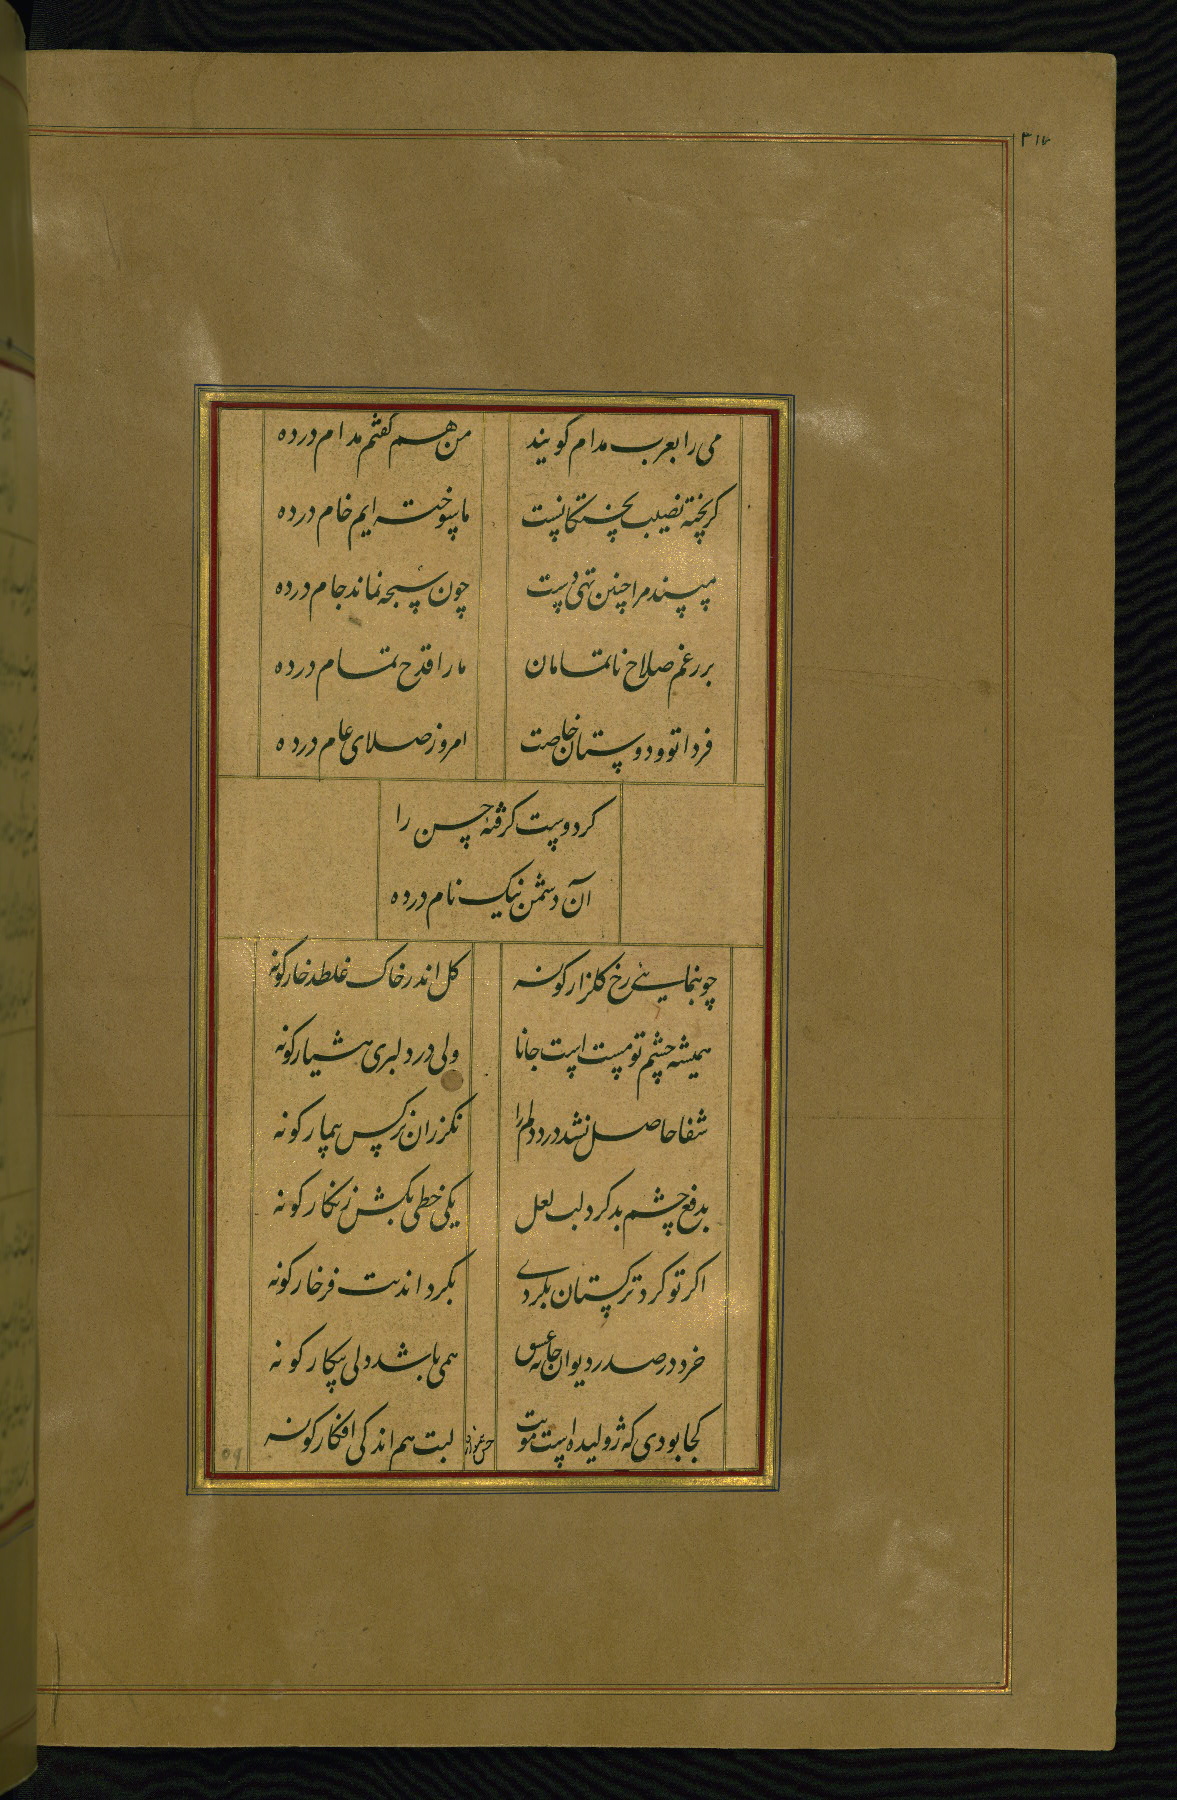 ۳۱۷
می را بعرب مدام کویند
من هم کفتم مدام درده
کر پخته نصیب پختکانست
ما سوخته ایم خام درده
مپسند مرا چنین تهی دست
چون سبحه نماند جام درده
بر رغم صلاح ناتمامان
ما را قدح تمام درده
فردا تو و دوستان خاصت
امروز صلای عام درده
کر دوست کرفته حسن را
آن دشمن نیک نام درده
چو بنمایی رخ کلزار کونه
کل اندر خاک غلطد خار کونه
همیشه چشم تو مست است جانا
ولی در دلبری هشیار کونه
شفا حاصل نشد درد دلم را
بدفع چشم بد کرد لب لعل
یکی خطی بکش زنکار کونه
اکر تو کرد ترکستان بکردی
خرد در صدر دیوان خانه عشق
همی باشد ولی بیکار کونه
کجا بودی که ژولیده است مویت
لبت هم اندکی افکار کونه